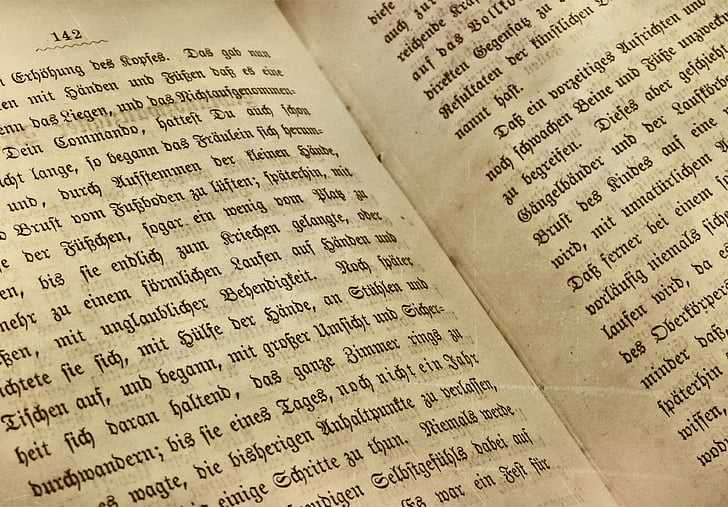 142
Erhöhung des Kopfes. Das gab nun
mit Händen und Füßen daß es eine
das Liegen, und das Nichtaufgenommen-
Dein Commando, hattest Du auch schon
lange, so begann das Fräulein sich herum-
und, durch Aufstemmen der kleinen Hände,
Brust vom Fußboden zu lüften; späterhin, mit
der Füßchen, sogar ein wenig vom Platz zu
bis sie endlich zum Kriechen gelangte, oder
mehr zu einem förmlichen Laufen auf Händen und
mit unglaublicher Behendigkeit. Noch später
sie sich, mit Hülfe der Hände, an Stühlen und
Tischen auf, und begann, mit großer Umsicht und Sicher-
heit sich daran haltend, das ganze Zimmer rings zu
durchwandern; bis sie eines Tages, noch nicht ein Jahr
wagte, die bisherigen Anhaltpunkte zu verlassen,
einige Schritte zu thun. Niemals werde
Selbstgefühls dabei auf
Es war ein Fest für
diese
auch zur
reichende
auf das
direkten Gegensatz zu
Resultaten der künstlichen
nannt hast.
Daß ein vorzeitiges Aufrichten und
noch schwachen Beine und Füße
zu begreifen. Dieses aber geschieht
Gängelbänder und der
Brust des Kindes auf eine
wird, mit unnatürlichem
Daß ferner bei einem
vorläufig niemals sich
laufen wird, da es
des Oberkörpers
minder daß
späterhin
wissen